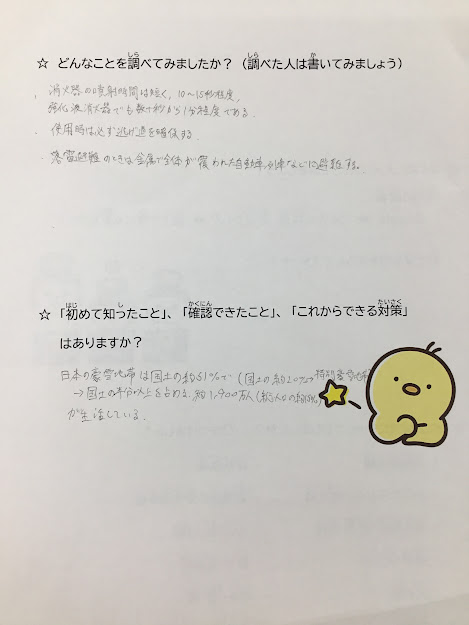 ☆ どんなことを調べてみましたか？（調べた人は書いてみましょう）
・消火器の噴射時間は短く、10〜15秒程度、
強化液消火器でも数十秒から1分程度である。
・使用時は必ず逃げ道を確保する。
・落雷避難のときは金属で全体が覆われた自動車、列車などに避難する。
☆「初めて知ったこと」、「確認できたこと」、「これからできる対策」
はありますか？
日本の豪雪地帯は国土の約51%で（国土の約20%→特別豪雪地帯
→国土の半分以上を占める。約1,900万人(総人口の約
が生活している。